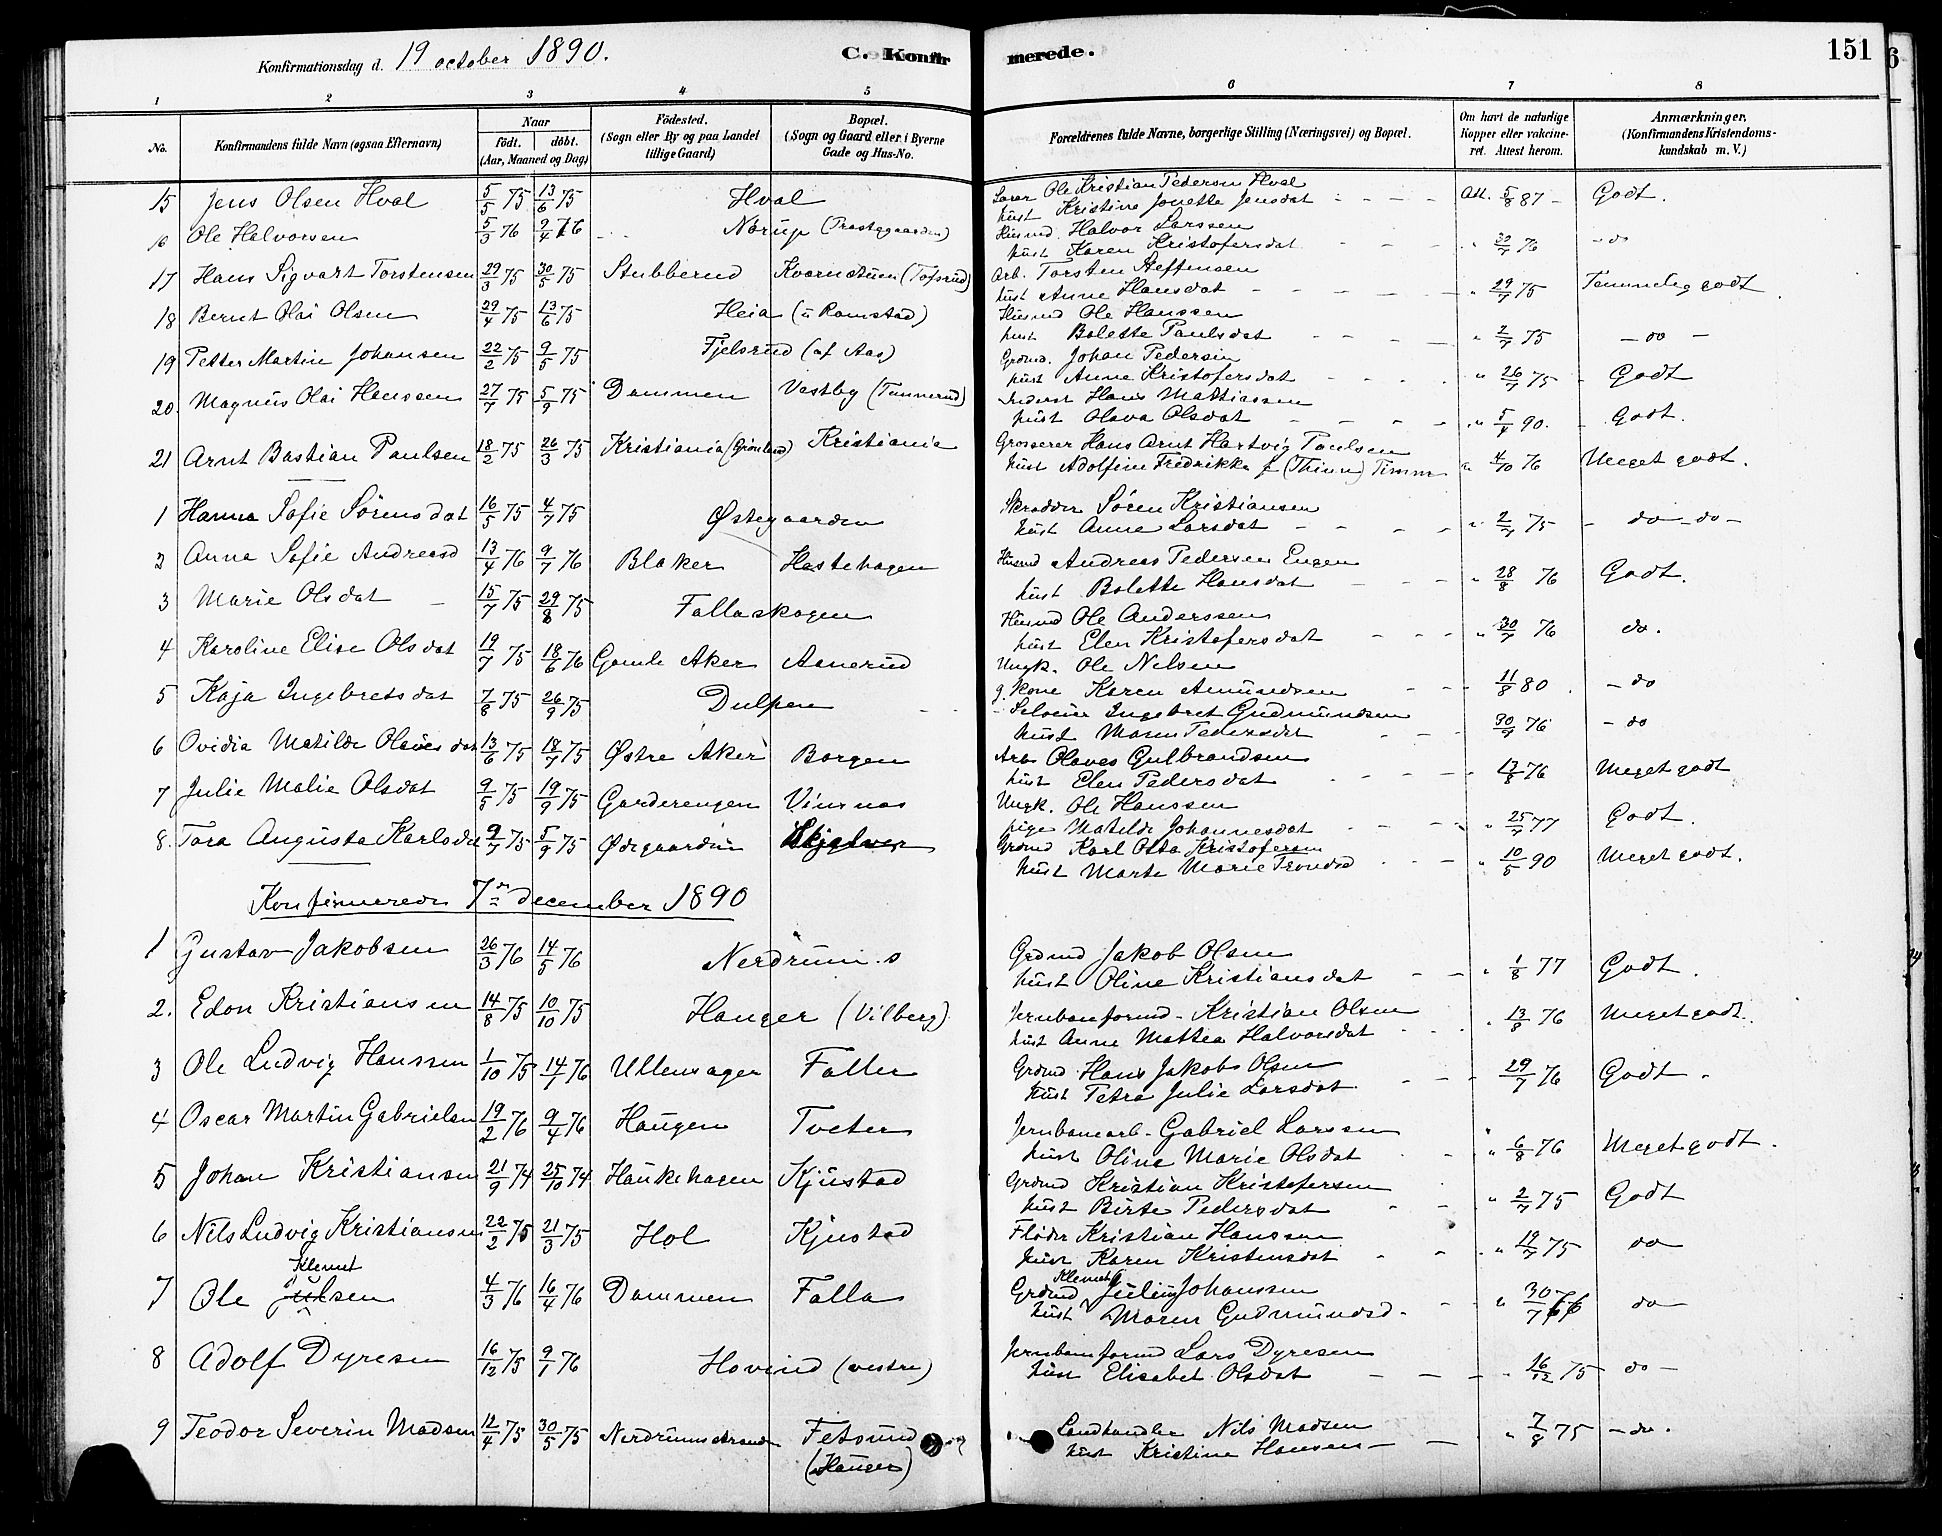 Konfirmationsdag d. 19 october 1890.
C. Konfirmerede.
151
1 2 3 4 5 6 7 8
No. Konfirmandens fulde Navn (ogsaa Efternavn) Naar født. døbt. (Aar, Maaned og Dag) Fødested. (Sogn eller By og paa Landet tillige Gaard) Bopæl. (Sogn og Gaard eller i Byerne Gade og Hus-No. Forældrenes fulde Navne, borgerlige Stilling (Næringsvei) og Bopæl. Om havt de naturlige Kopper eller vakcineret. Attest herom. Anmærkninger. (Konfirmandens Kristendomskundskab m. V.)
15 Jens Olsen Hval 5/5 75 13/6 75 Hval Ole Kristian Pedersen Hval
hust Kristine Jonette Jensdat - - - - Att. 5/8 87 - Godt.
16 Ole Halvorsen 5/3 76 9/4 76 Nørup (Præstegaarden) Husmd. Halvor Larssen
hust Karen Kristofersdat - - - " 30/7 76 - do
17 Hans Sigvart Torstensen 29/3 75 30/5 75 Stubberud Kvernstuen (Tofsrud) Arb. Torsten Steffensen
hust Anne Hansdat - - - - " 29/7 75 Temmelig godt.
18 Bernt Olai Olsen 29/4 75 13/6 75 Heia (u Ramstad) Husmd Ole Hanssen
hust Bolette Paulsdat - - - - " 2/7 75 - do -
19 Petter Martin Johansen 22/2 75 9/5 75 Fjelsrud (af Aas) Grdmd. Johan Pedersen
hust Anne Kristofersdat - - - - " 26/7 75 - Godt
20. Magnus Olai Hanssen 27/7 75 5/9 75 Dammen Vestby (Tannerud) Inderst Hans Mathiassen
hust Olava Olsdat - - - - " 5/4 90. - Godt.
21 Arnt Bastian Paulsen 18/2 75 26/3 75 Kristiania (Grønland) Kristiania Grosserer Hans Arnt Hartvig Paulsen
hust Adolfine Fredrikke f (Thinn) Timm " 4/10 76 Meget godt.
1 Hanna Sofie Sørensdat 16/5 75 4/7 75 Østegaarden Skrædder Søren Kristiansen
hust Anne Larsdat - - - - " 2/7 75 - do - do -
2 Anna Sofie Andreasd 13/4 76 9/7 76 Blaker Hestehagen Husmd Andreas Pedersen Engen
hust Bolette Hansdat - - - " 28/8 76 Godt.
3 Marie Olsdat - 15/7 75 29/8 75 Fallaskogen Husmd Ole Anderssen
hust Elen Kristofersdat - - - " 30/7 76 do.
4 Karoline Elise Olsdat 19/7 75 18/6 76 Gamle Aker Aanerud Ungk. Ole Nelsen
g. kone Karen Amundsen - - - 11/8 80. - do
5 Kaja Ingebretsdat 7/8 75 26/9 75 Dulpen Selveier Ingebret Gudmundsen
hust Maren Pedersdat - - 30/7 76 - do
6 Ovidia Matilde Olavesdat 13/6 75 18/7 75 Østre Aker Borgen Arb Olaves Gulbrandsen
hust Elen Pedersdat - - - - 13/8 76 Meget godt
7 Julie Malie Olsdat 9/5 75 19/9 75 Garderengen Viurnes Ungk. Ole Hanssen
pige Matilde Johannesdat - - - " 25/7 77 Godt.
8. Tora Augusta Karlsdat 9/7 75 5/9 75 Ødegaarden Skjelver Grdmd Karl Otto Kristofersen
hust Marte Marie Trondsd - - - " 10/5 90 Meget godt.
Konfirmerede 7de december 1890
1 Gustav Jakobsen 26/3 76 14/5 76 Nerdrum. s Grdmd Jakob Olsen
hust Oline Kristiansdat - - " 1/8 77 Godt.
2. Edon Kristiansen 14/8 75 10/10 75 Hauger (Vilberg) Jernbaneformd - Kristian Olsen
hust Anne Mathea Halvorsdat - - - " 13/8 76 Meget godt.
3 Ole Ludvig Hanssen 1/10 75 14/1 76 Ullensager Faller Grdmd Hans Jakob Olsen
hust Petra Julie Larsdat - - - 29/7 76 Godt.
4 Oscar Martin Gabrielsen 19/2 76 9/4 76 Haugen Tveter Jernbanearb. Gabriel Larssen
hust Oline Marie Olsdat - - " 6/8 76 Meget godt.
5 Johan Kristiansen 21/9 74 25/10 74 Haukehagen Kjustad Grdmd Kristian Kristofersen
hust Birte Pedersdat - - " 2/7 75 Godt
6 Nils Ludvig Kristiansen 22/2 75 21/3 75 Hol Kjustad Fløder Kristian Hanssen
hust Karen Kristensdat - - " 19/7 75 do
Klemet Klemet
7 Ole Julsen 4/3 76 16/4 76 Dammen Falla Grdmd Julius Johanssen
hust Maren Gudmundsd. - - " 30/7 76 do
8 Adolf Dyresen 16/12 75 9/1 76 Hovind (vestre) Jernbaneformd Lars Dyresen
hust Elisabet Olsdat - - - - " 16/12 75 do -
9 Teodor Severin Madsen 12/4 75 30/5 75 Nerdrumstrand Fetsund Landhandler Nils Madsen
(Hauger) hust Kristine Hansen - - " 7/8 75 - do.